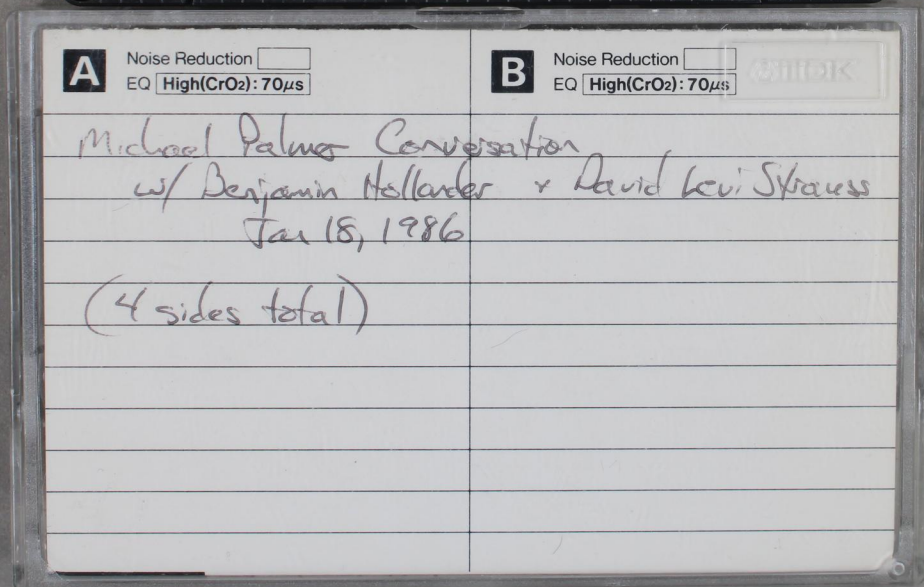 A Noise Reduction
EQ High(CrO2):70µs
B Noise Reduction
EQ High(CrO2):70µs
Michael Palmer Conversation
w/ Benjamin Hollander + David Levi Strauss
Jan 18, 1986
(4 sides total)